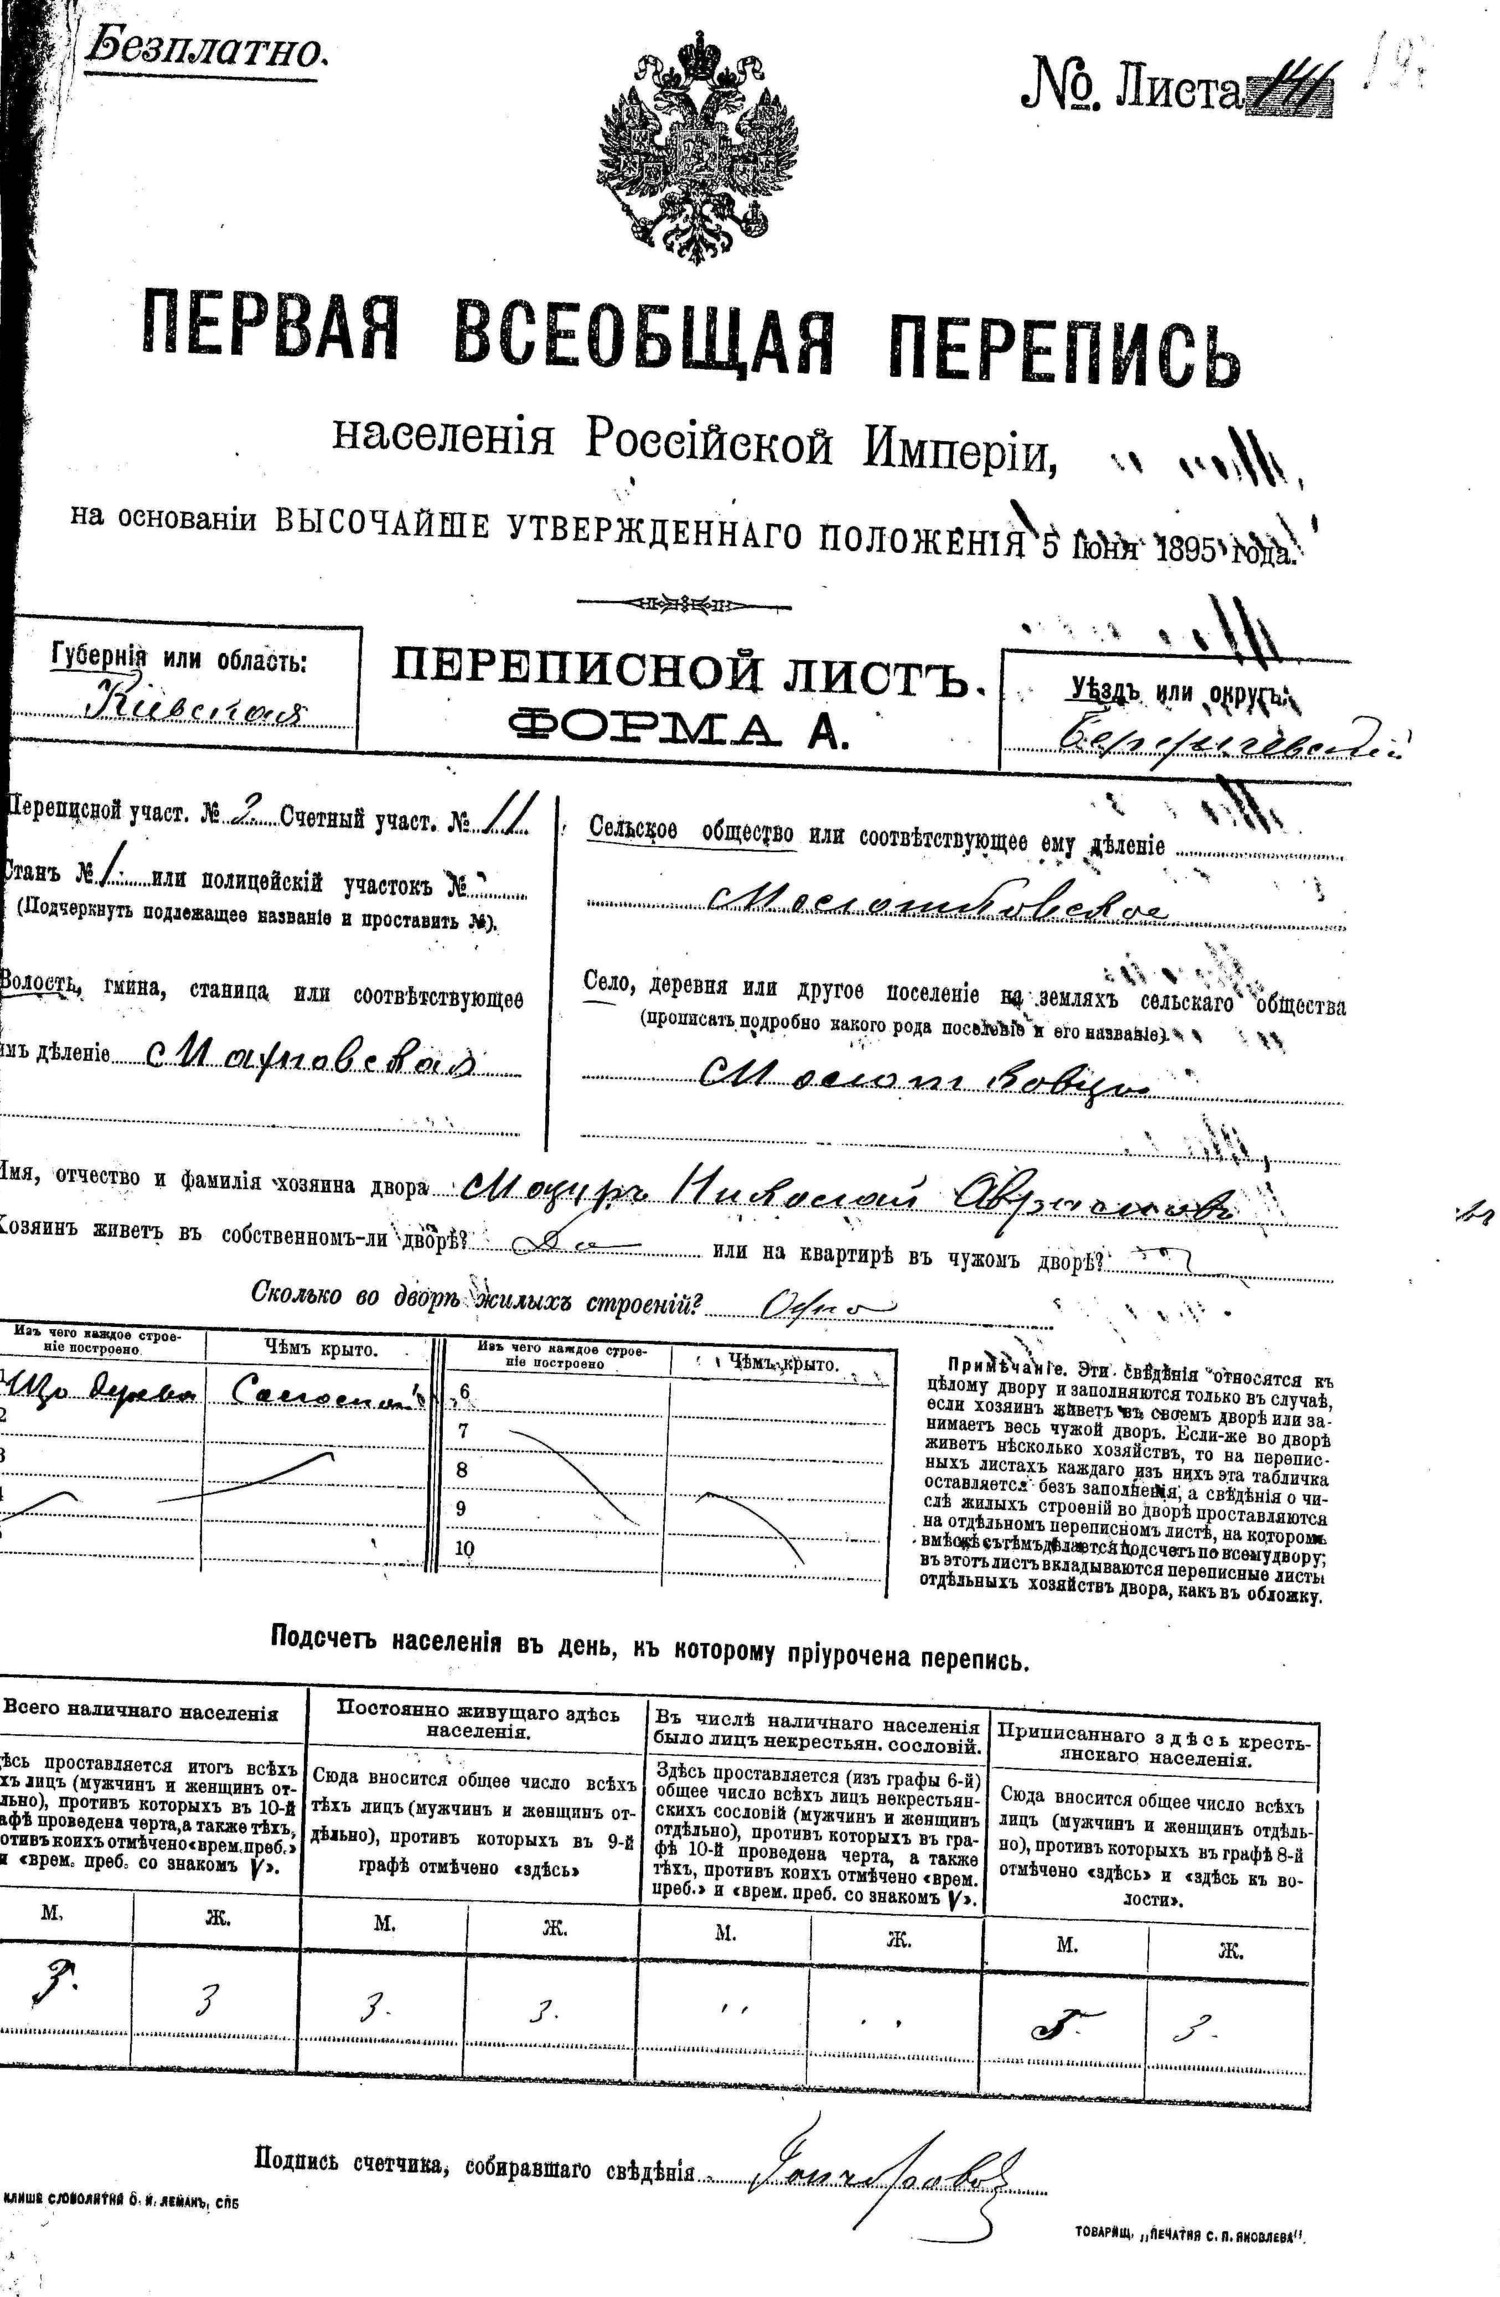 Безплатно.
№ Листа 141
ПЕРВАЯ ВСЕОБЩАЯ ПЕРЕПИСЬ
населенія Россійской Имперіи,
на основаніи ВЫСОЧАЙШЕ УТВЕРЖДЕННАГО ПОЛОЖЕНІЯ 5 Іюня 1895 года.
Губернія или область:
Кіевская
ПЕРЕПИСНОЙ ЛИСТЪ.
ФОРМА А.
Уѣздъ или округъ:
Бердичевскій
Переписной участ. № 2. Счетный участ. № 11
Станъ № 1. или полицейскій участокъ №
(Подчеркнуть подлежащее названіе и проставить №).
Волость, гмина, станица или соотвѣтствующее
имъ дѣленіе Махновская
Сельское общество или соотвѣтствующее ему дѣленіе
Село, деревня или другое поселеніе на земляхъ сельскаго общества
(прописать подробно какого рода поселеніе и его названіе).
Имя, отчество и фамилія хозяина двора Мазуръ Николай Аврамовъ
Хозяинъ живетъ въ собственномъ-ли дворѣ? Да или на квартирѣ въ чужомъ дворѣ?
Сколько во дворѣ жилыхъ строеній? Одно
Изъ чего каждое строе-
ніе построено
Чѣмъ крыто.
Изъ чего каждое строе-
ніе построено
Чѣмъ крыто.
1 Изъ дерева Соломой 6
2 7
3 8
4 9
5 10
Примѣчаніе. Эти свѣдѣнія относятся къ
цѣлому двору и заполняются только въ случаѣ,
если хозяинъ живетъ въ своемъ дворѣ или за-
нимаетъ весь чужой дворъ. Если-же во дворѣ
живетъ нѣсколько хозяйствъ, то на перепис-
ныхъ листахъ каждаго изъ нихъ эта табличка
оставляется безъ заполненія, а свѣдѣнія о чи-
слѣ жилыхъ строеній во дворѣ проставляются
на отдѣльномъ переписномъ листѣ, на которомъ
вмѣстѣ съ тѣмъ дѣлается подсчетъ по всему двору;
въ этотъ листъ вкладываются переписные листы
отдѣльныхъ хозяйствъ двора, какъ въ обложку.
Подсчетъ населенія въ день, къ которому пріурочена перепись.
Всего наличнаго населенія
Здѣсь проставляется итогъ всѣхъ
тѣхъ лицъ (мужчинъ и женщинъ от-
дѣльно), противъ которыхъ въ 10-й
графѣ проведена черта, а также тѣхъ,
противъ коихъ отмѣчено «врем. преб.»
и «врем. преб. со знакомъ V».
Постоянно живущаго здѣсь
населенія.
Сюда вносится общее число всѣхъ
тѣхъ лицъ (мужчинъ и женщинъ от-
дѣльно), противъ которыхъ въ 9-й
графѣ отмѣчено «здѣсь»
Въ числѣ наличнаго населенія
было лицъ некрестьян. сословій.
Здѣсь проставляется (изъ графы 6-й)
общее число всѣхъ лицъ некрестьян-
скихъ сословій (мужчинъ и женщинъ
отдѣльно), противъ которыхъ въ гра-
фѣ 10-й проведена черта, а также
тѣхъ, противъ коихъ отмѣчено «врем.
преб.» и «врем. преб. со знакомъ V».
Приписаннаго здѣсь кресть-
янскаго населенія.
Сюда вносится общее число всѣхъ
лицъ (мужчинъ и женщинъ отдѣль-
но), противъ которыхъ въ графѣ 8-й
отмѣчено «здѣсь» и «здѣсь къ во-
лости».
М. Ж. М. Ж. М. Ж. М. Ж.
3 3. 3. 3.
Подпись счетчика, собиравшаго свѣдѣнія
КЛИШЕ СЛОВОЛИТНИ О. И. ЛЕМАНЪ, СПБ
ТОВАРИЩ. „ПЕЧАТНЯ С. П. ЯКОВЛЕВА".